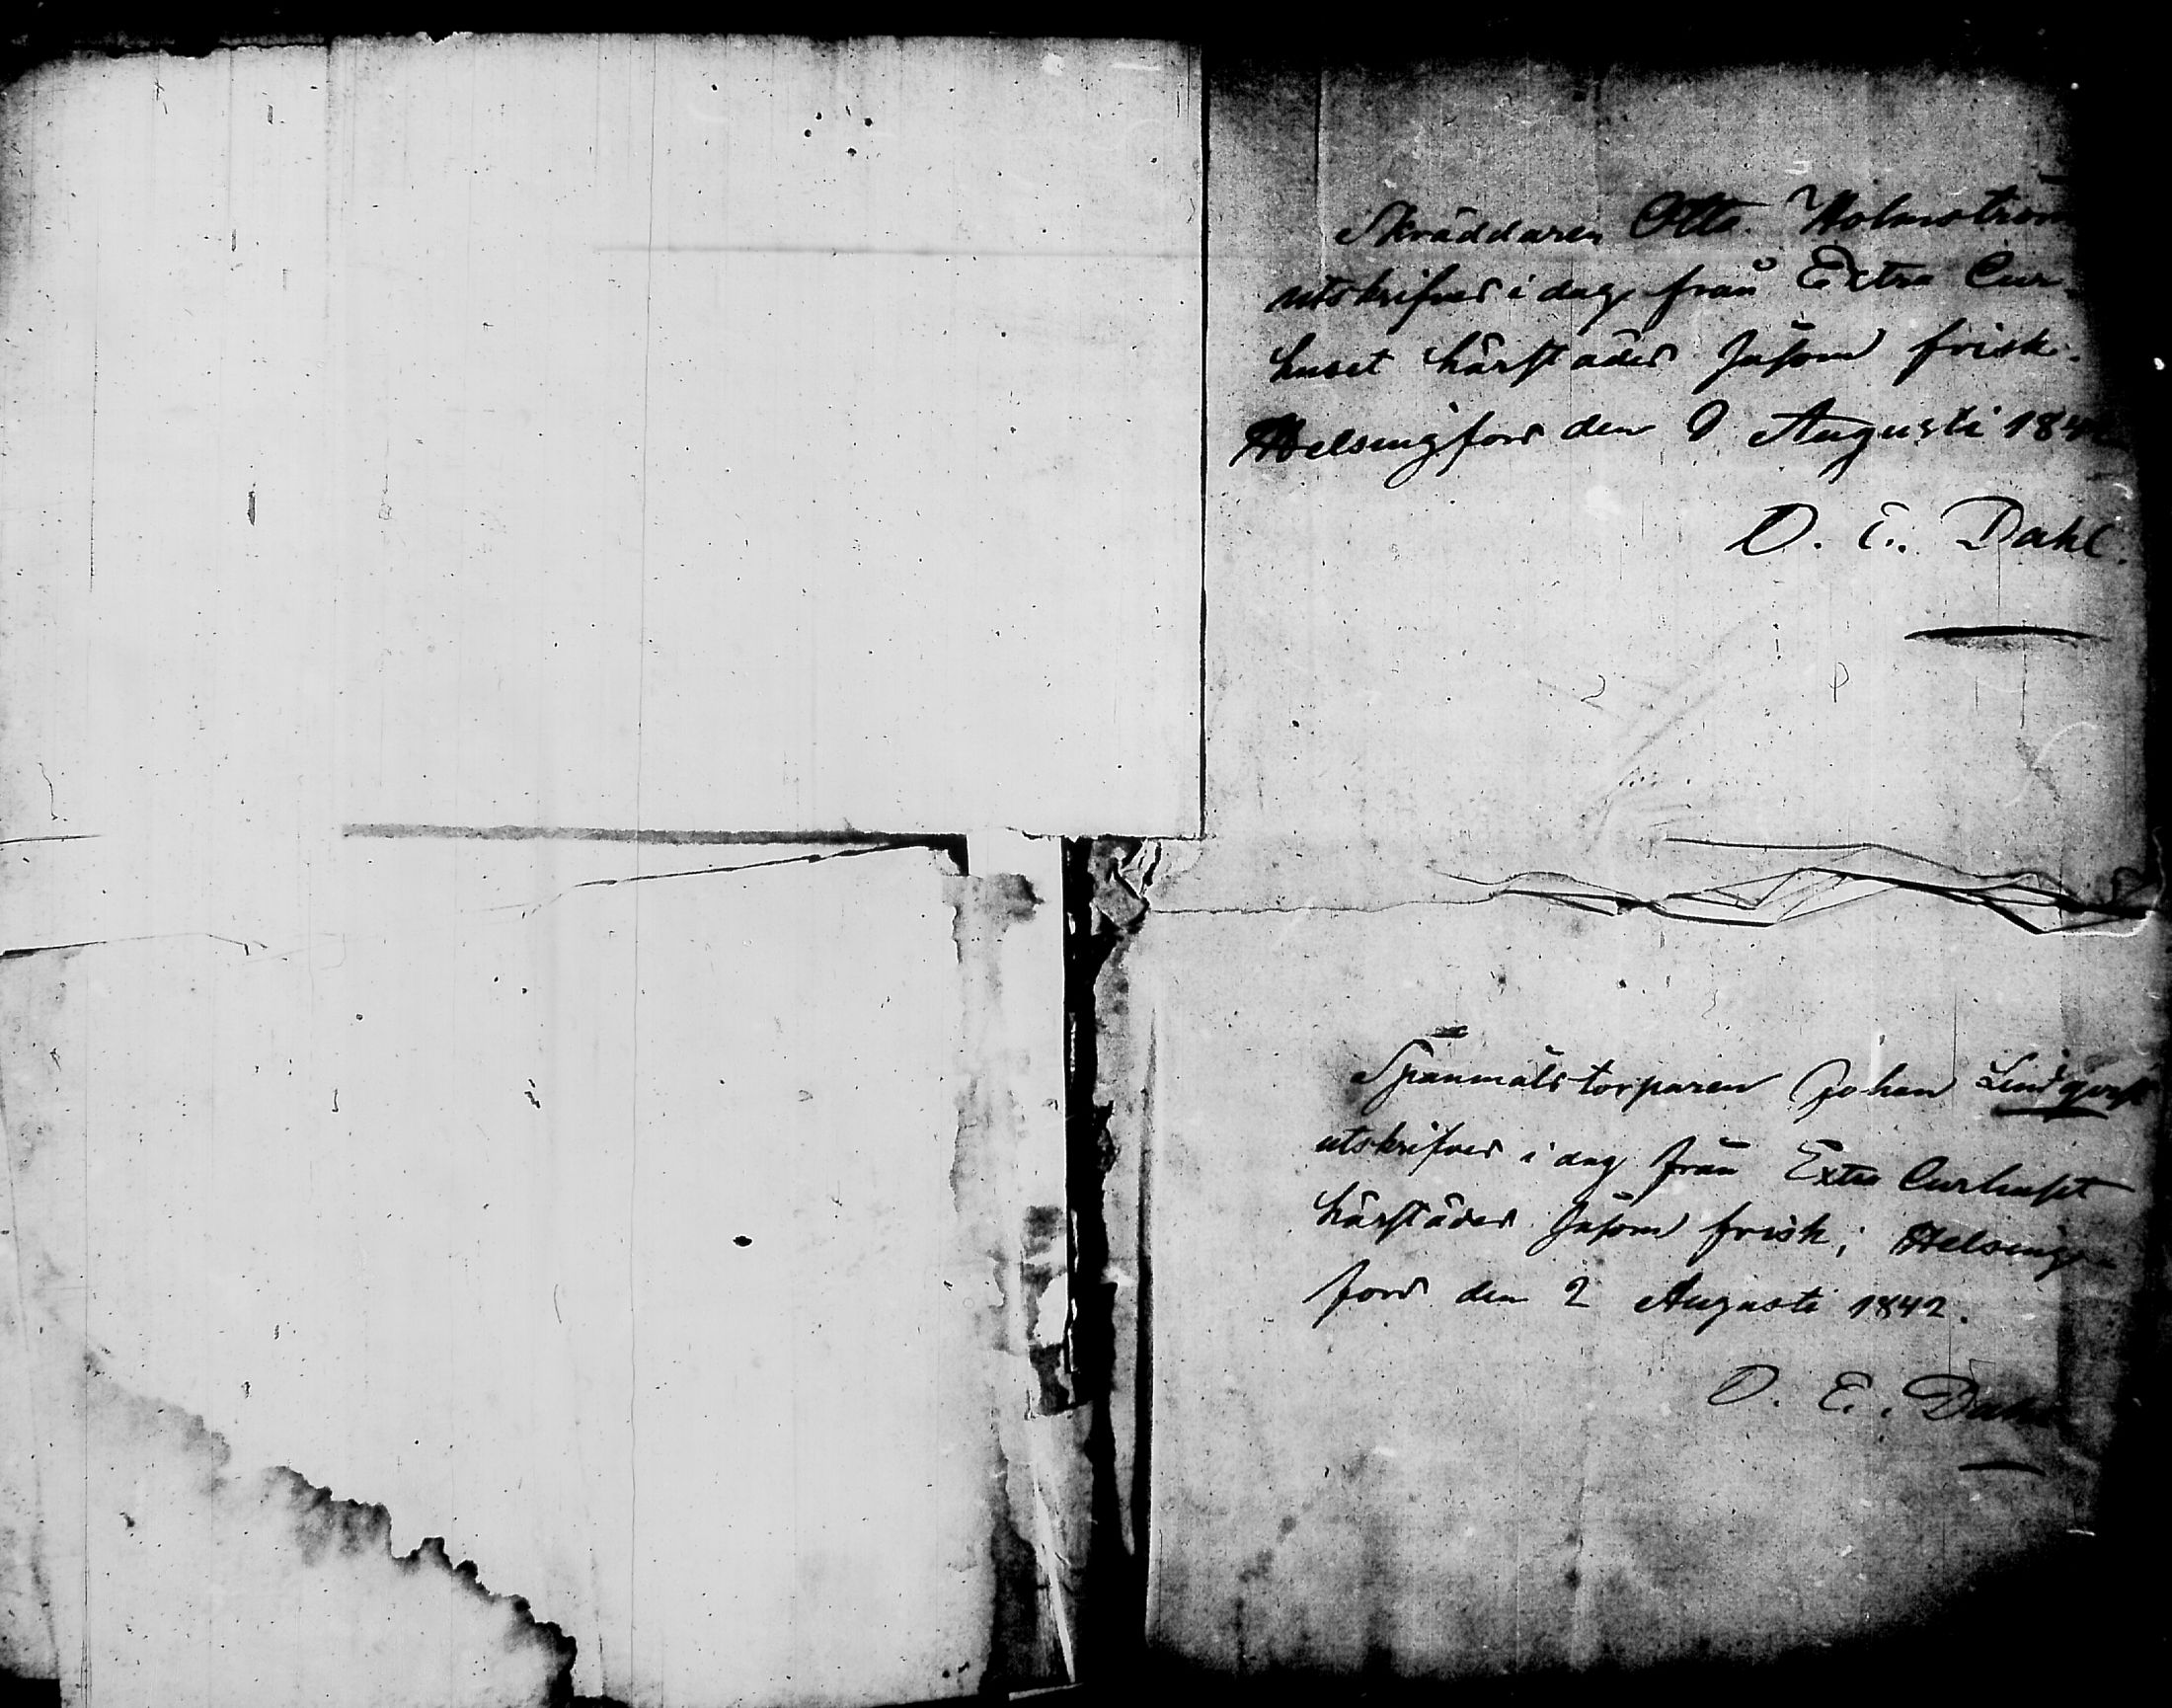 Skräddaren Otto Holmström
utskrifves i dag från Extra Cur-
huset härstädes såsom frisk.
Helsingfors den 9 Augusti 184
O. E. Dahl.
Spanmålstorparen Johan Lindqvist
utskrifves i dag från Extra Curhuset
härstädes såsom frisk; Helsing-
fors den 2 Augusti 1842.
O. E. Dahl